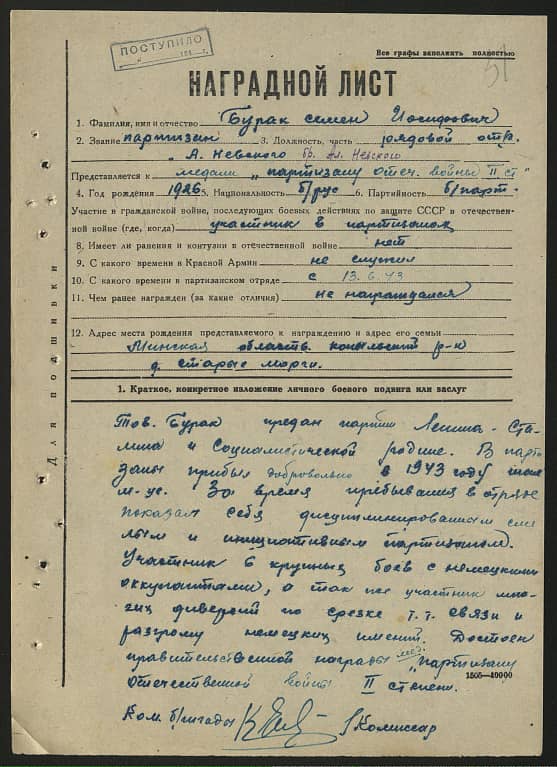 ПОСТУПИЛО
Все графы заполнять полностью
51
НАГРАДНОЙ ЛИСТ
1. Фамилия, имя и отчество Бурак семен Иосифович
2. Звание партизан 3. Должность, часть рядовой отр.
"А. Невского бр. Ал. Невского
Представляется к медали "партизану отеч. войны II ст"
4. Год рождения 1926 5. Национальность б/рус 6. Партийность б/парт.
Участие в гражданской войне, последующих боевых действиях по защите СССР и отечествен-
ной войне (где, когда) участник в партизанах
8. Имеет ли ранения и контузии в отечественной войне нет
9. С какого времени в Красной Армии не служил
10. С какого времени в партизанском отряде с 13.6.43
11. Чем ранее награжден (за какие отличия) не награждался
12. Адрес места рождения представляемого к награждению и адрес его семьи
Минская область копыльский р-н
д. старые морги.
1. Краткое, конкретное изложение личного боевого подвига или заслуг
Тов. Бурак предан партии Ленина-Ста-
лина и Социалистической родине. В парти
заны прибыл добровольно в 1943 году июне
м-це. За время пребывания в отряде
показал себя дисциплинированным сме
лым и инициативным партизаном.
Участник 6 крупных боев с немецкими
оккупантами, а так же участник мно-
гих диверсий по срезке т.т. связи и
разгрому немецких имений. Достоен
правительственной награды мед. "партизану
Отечественной войны II степени.
1505—40000
Ком. бригады Комиссар
Для подшивки